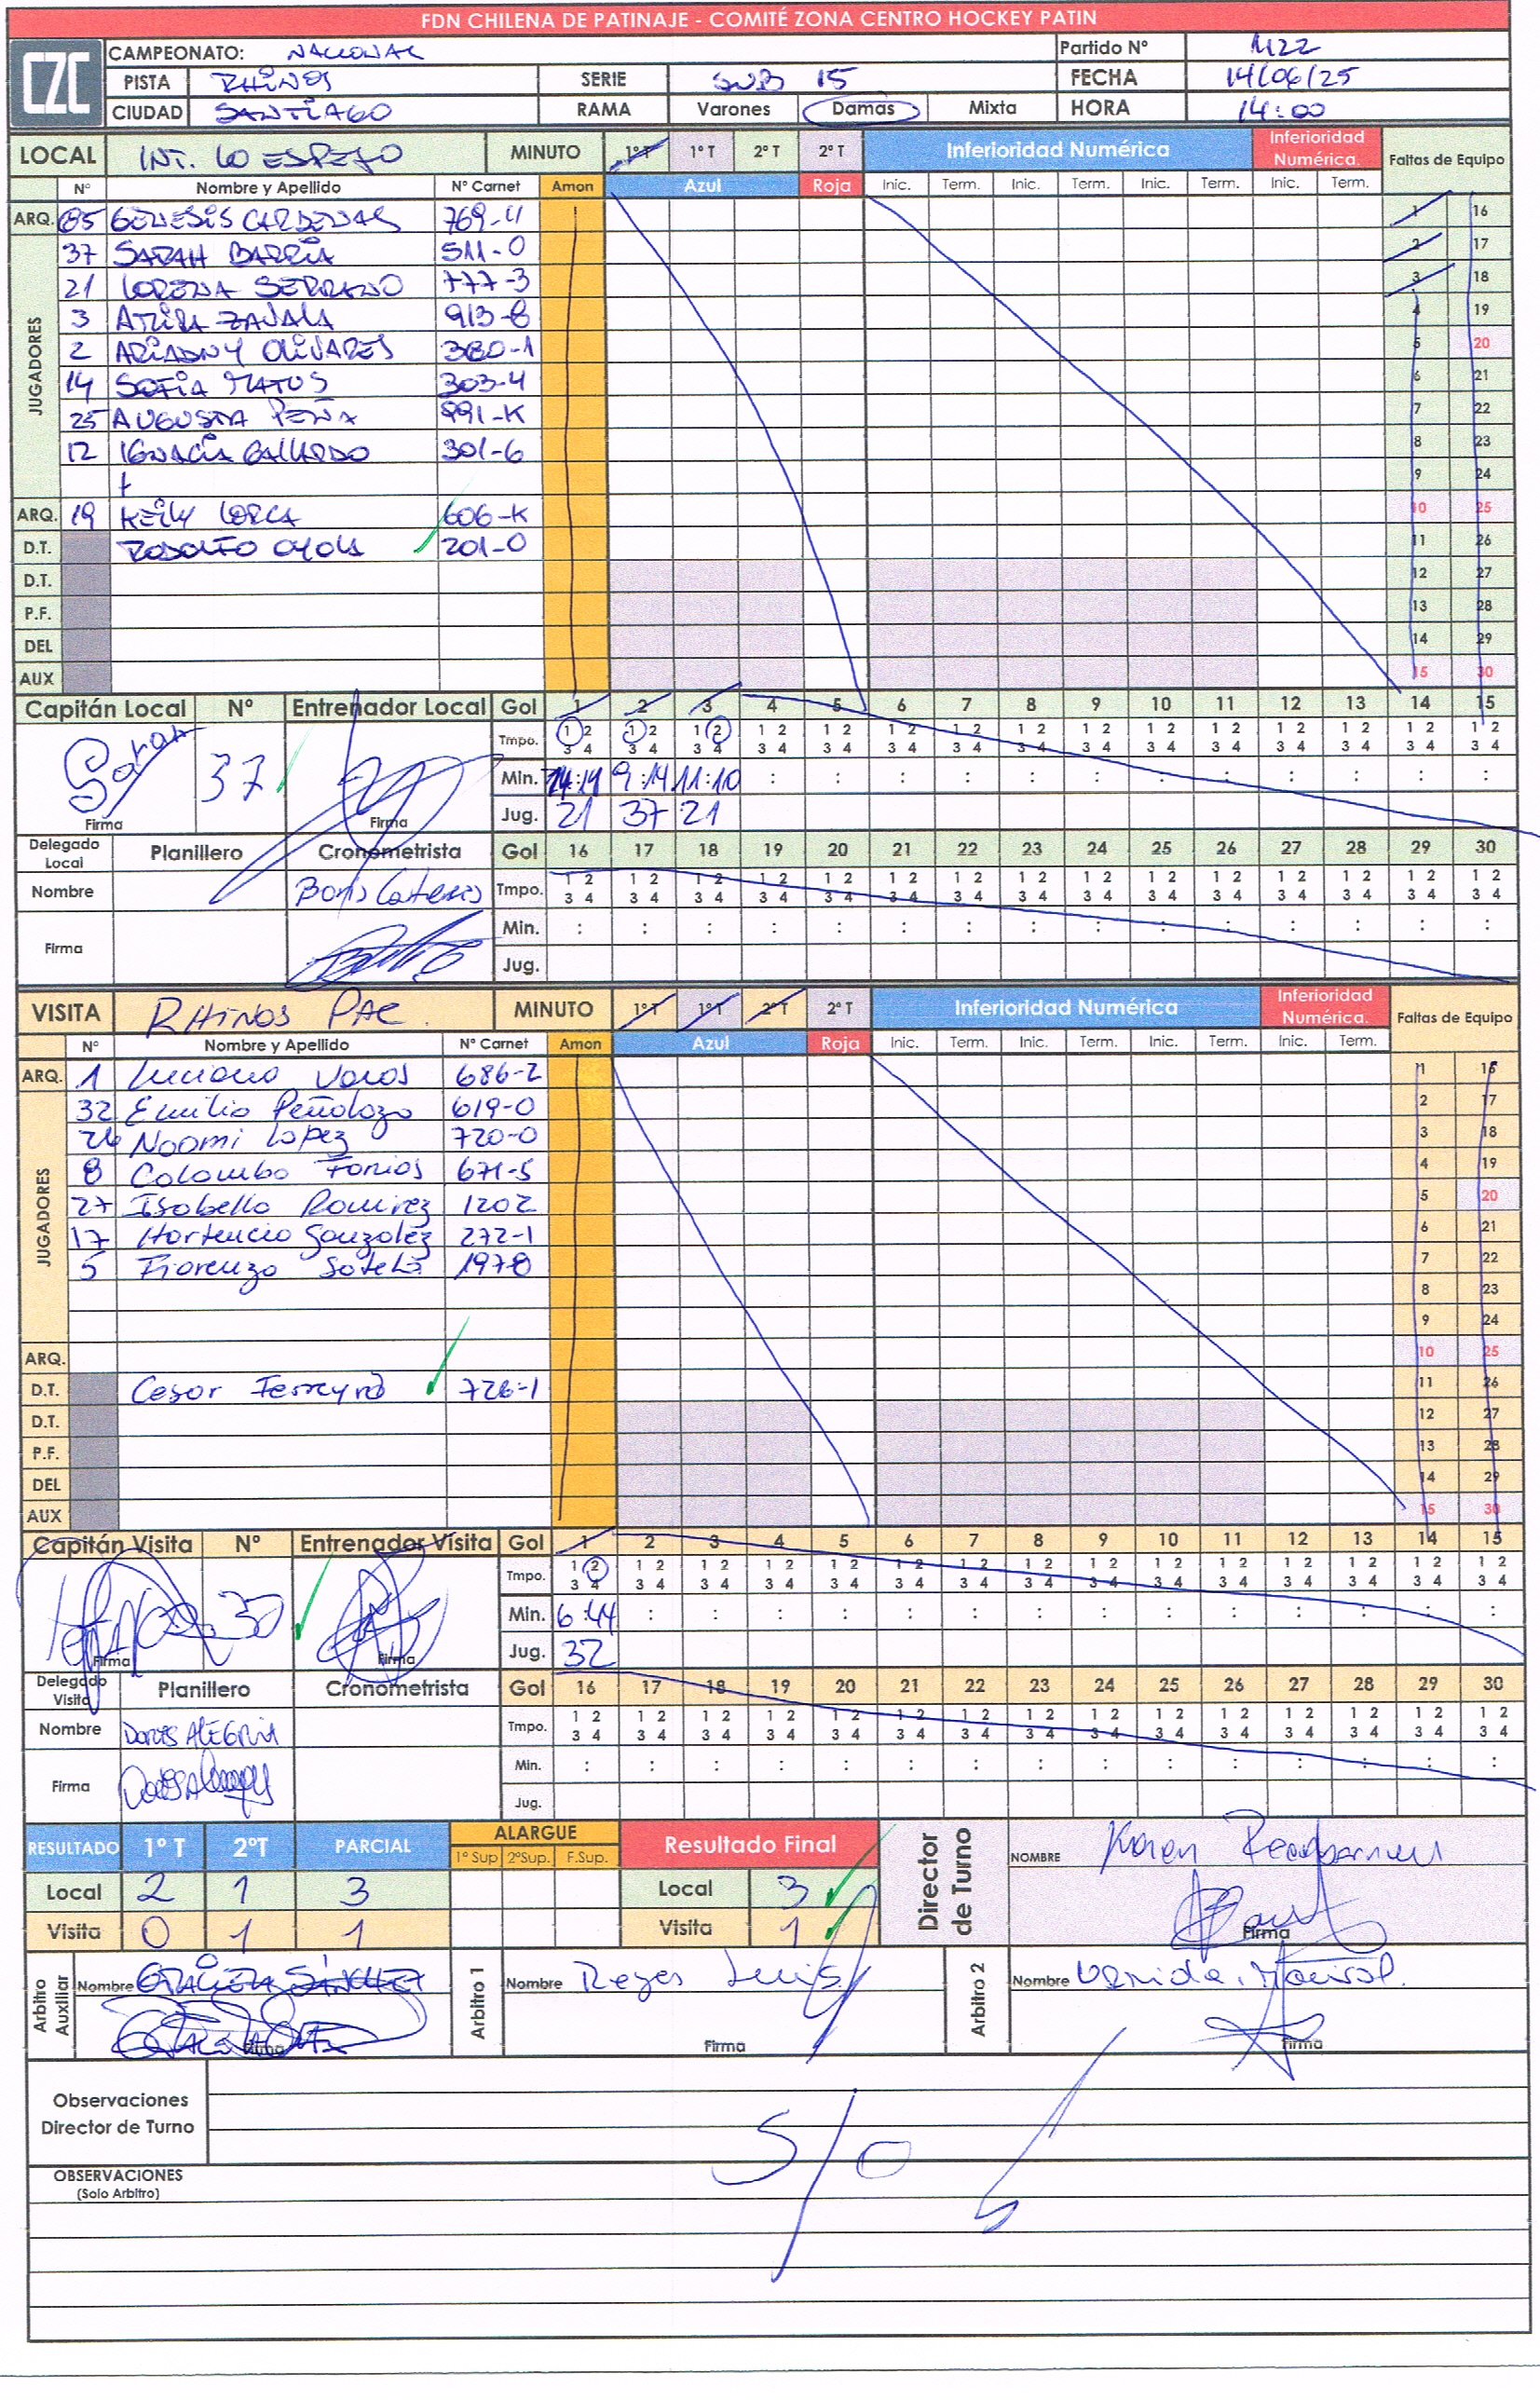 FDN CHILENA DE PATINAJE - COMITÉ ZONA CENTRO HOCKEY PATIN
CZC
CAMPEONATO: NACIONAL Partido Nº M22
PISTA RHINOS SERIE SUB 15 FECHA 14/06/25
CIUDAD SANTIAGO RAMA Varones Damas Mixta HORA 14:00
LOCAL INT. LO ESPEJO MINUTO 1º T 1º T 2º T 2º T Inferioridad Numérica Inferioridad Numérica. Faltas de Equipo
Nº Nombre y Apellido Nº Carnet Amon Azul Roja Inic. Term. Inic. Term. Inic. Term. Inic. Term.
ARQ. 85 GENESIS CARDENAS 769-4 1 16
JUGADORES
37 SARAH BARRIA 511-0 2 17
21 LORENA SERRANO 777-3 3 18
3 ATZIRA ZAVALA 913-8 4 19
2 ARIADNY OLIVARES 380-1 5 20
14 SOFIA MATUS 303-4 6 21
25 AUGUSTA PEÑA 991-K 7 22
12 IGNACIA GALLARDO 301-6 8 23
9 24
ARQ. 19 KEILY LORCA 606-K 10 25
D.T. RODOLFO OYOLA 201-0 11 26
D.T. 12 27
P.F. 13 28
DEL 14 29
AUX 15 30
Capitán Local Nº Entrenador Local Gol 1 2 3 4 5 6 7 8 9 10 11 12 13 14 15
Sarah 37 Tmpo. 1 2 1 2 1 2 1 2 1 2 1 2 1 2 1 2 1 2 1 2 1 2 1 2 1 2 1 2 1 2
3 4 3 4 3 4 3 4 3 4 3 4 3 4 3 4 3 4 3 4 3 4 3 4 3 4 3 4 3 4
Min. 14:14 9:14 11:10 : : : : : : : : : : : :
Firma Firma Jug. 21 37 21
Delegado Local Planillero Cronometrista Gol 16 17 18 19 20 21 22 23 24 25 26 27 28 29 30
Nombre Boris Tmpo. 1 2 1 2 1 2 1 2 1 2 1 2 1 2 1 2 1 2 1 2 1 2 1 2 1 2 1 2 1 2
3 4 3 4 3 4 3 4 3 4 3 4 3 4 3 4 3 4 3 4 3 4 3 4 3 4 3 4 3 4
Firma Min. : : : : : : : : : : : : : : :
Jug.
VISITA RHINOS PAC. MINUTO 1º T 1º T 2º T 2º T Inferioridad Numérica Inferioridad Numérica. Faltas de Equipo
Nº Nombre y Apellido Nº Carnet Amon Azul Roja Inic. Term. Inic. Term. Inic. Term. Inic. Term.
ARQ. 1 Luciana Varas 686-2 1 16
JUGADORES
32 Emilia Peñaloza 619-0 2 17
26 Noomi Lopez 720-0 3 18
8 Colomba Farias 671-5 4 19
27 Isabella Ramirez 1202 5 20
17 Hortencia Gonzalez 272-1 6 21
5 Fiorenza Sotela 1978 7 22
8 23
9 24
ARQ. 10 25
D.T. Cesar Ferreyra 726-1 11 26
D.T. 12 27
P.F. 13 28
DEL 14 29
AUX 15 30
Capitán Visita Nº Entrenador Visita Gol 1 2 3 4 5 6 7 8 9 10 11 12 13 14 15
Tmpo. 1 2 1 2 1 2 1 2 1 2 1 2 1 2 1 2 1 2 1 2 1 2 1 2 1 2 1 2 1 2
3 4 3 4 3 4 3 4 3 4 3 4 3 4 3 4 3 4 3 4 3 4 3 4 3 4 3 4 3 4
Min. 6:44 : : : : : : : : : : : : : :
Firma Firma Jug. 32
Delegado Visita Planillero Cronometrista Gol 16 17 18 19 20 21 22 23 24 25 26 27 28 29 30
Nombre DORIS ALEGRIA Tmpo. 1 2 1 2 1 2 1 2 1 2 1 2 1 2 1 2 1 2 1 2 1 2 1 2 1 2 1 2 1 2
3 4 3 4 3 4 3 4 3 4 3 4 3 4 3 4 3 4 3 4 3 4 3 4 3 4 3 4 3 4
Firma Min. : : : : : : : : : : : : : : :
Jug.
RESULTADO 1º T 2ºT PARCIAL ALARGUE Resultado Final Director de Turno NOMBRE Karen
1º Sup 2ºSup. F.Sup.
Local 2 1 3 Local 3
Visita 0 1 1 Visita 1 Firma
Arbitro Auxiliar Nombre GRACIELA SÁNCHEZ Arbitro 1 Nombre Reyes Luis Arbitro 2 Nombre
Firma Firma Firma
Observaciones
Director de Turno
S/O
OBSERVACIONES
(Solo Arbitro)